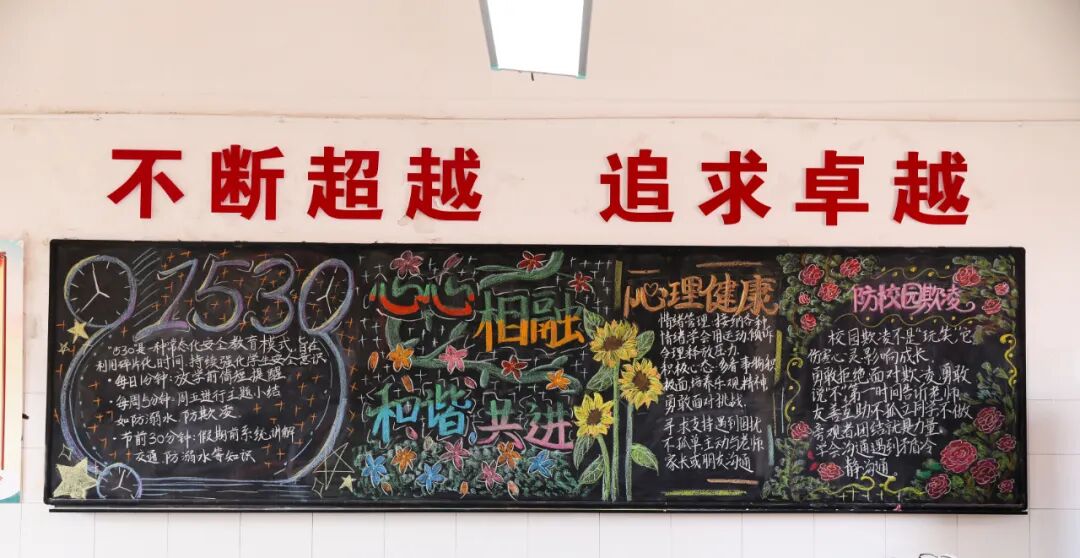 不断超越 追求卓越
1530
"1530"是一种常态化安全教育模式,旨在
利用碎片化时间,持续强化学生安全意识
·每日1分钟:放学前侧重提醒
·每周5分钟:周五进行主题小结
如防溺水、防欺凌
·节前30分钟:假期前系统讲解
交通、防溺水等知识
心心相融
和谐共进
心理健康
情绪管理:接纳各种
情绪学会用运动、倾诉
合理释放压力
积极心态:多看事物积
极面,培养乐观精神
勇敢面对挑战
寻求支持遇到困扰
不孤单主动与老师
家长或朋友沟通
防校园欺凌
校园欺凌不是"玩笑"它
伤害心灵影响成长
勇敢拒绝面对欺凌勇敢
说不,第一时间告诉老师
友善互助不孤立同学不做
旁观者团结就是力量
学会沟通遇到矛盾冷
静沟通